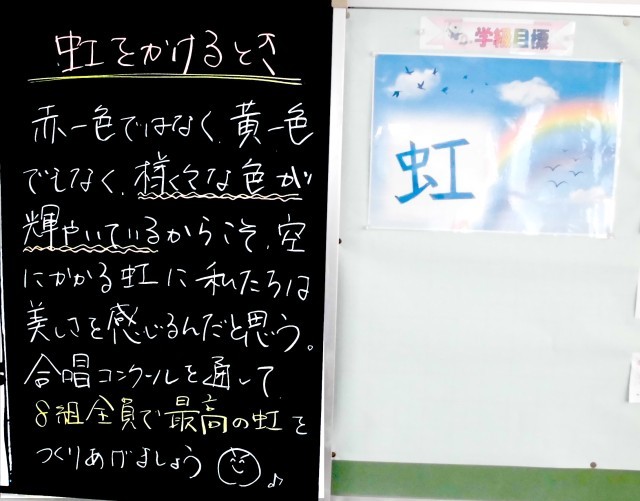 虹をかけるとき
赤一色ではなく、黄一色
でもなく、様々な色が
輝やいているからこそ、空
にかかる虹に私たちは
美しさを感じるんだと思う。
合唱コンクールを通して
8組全員で最高の虹を
つくりあげましょう
学級目標
虹